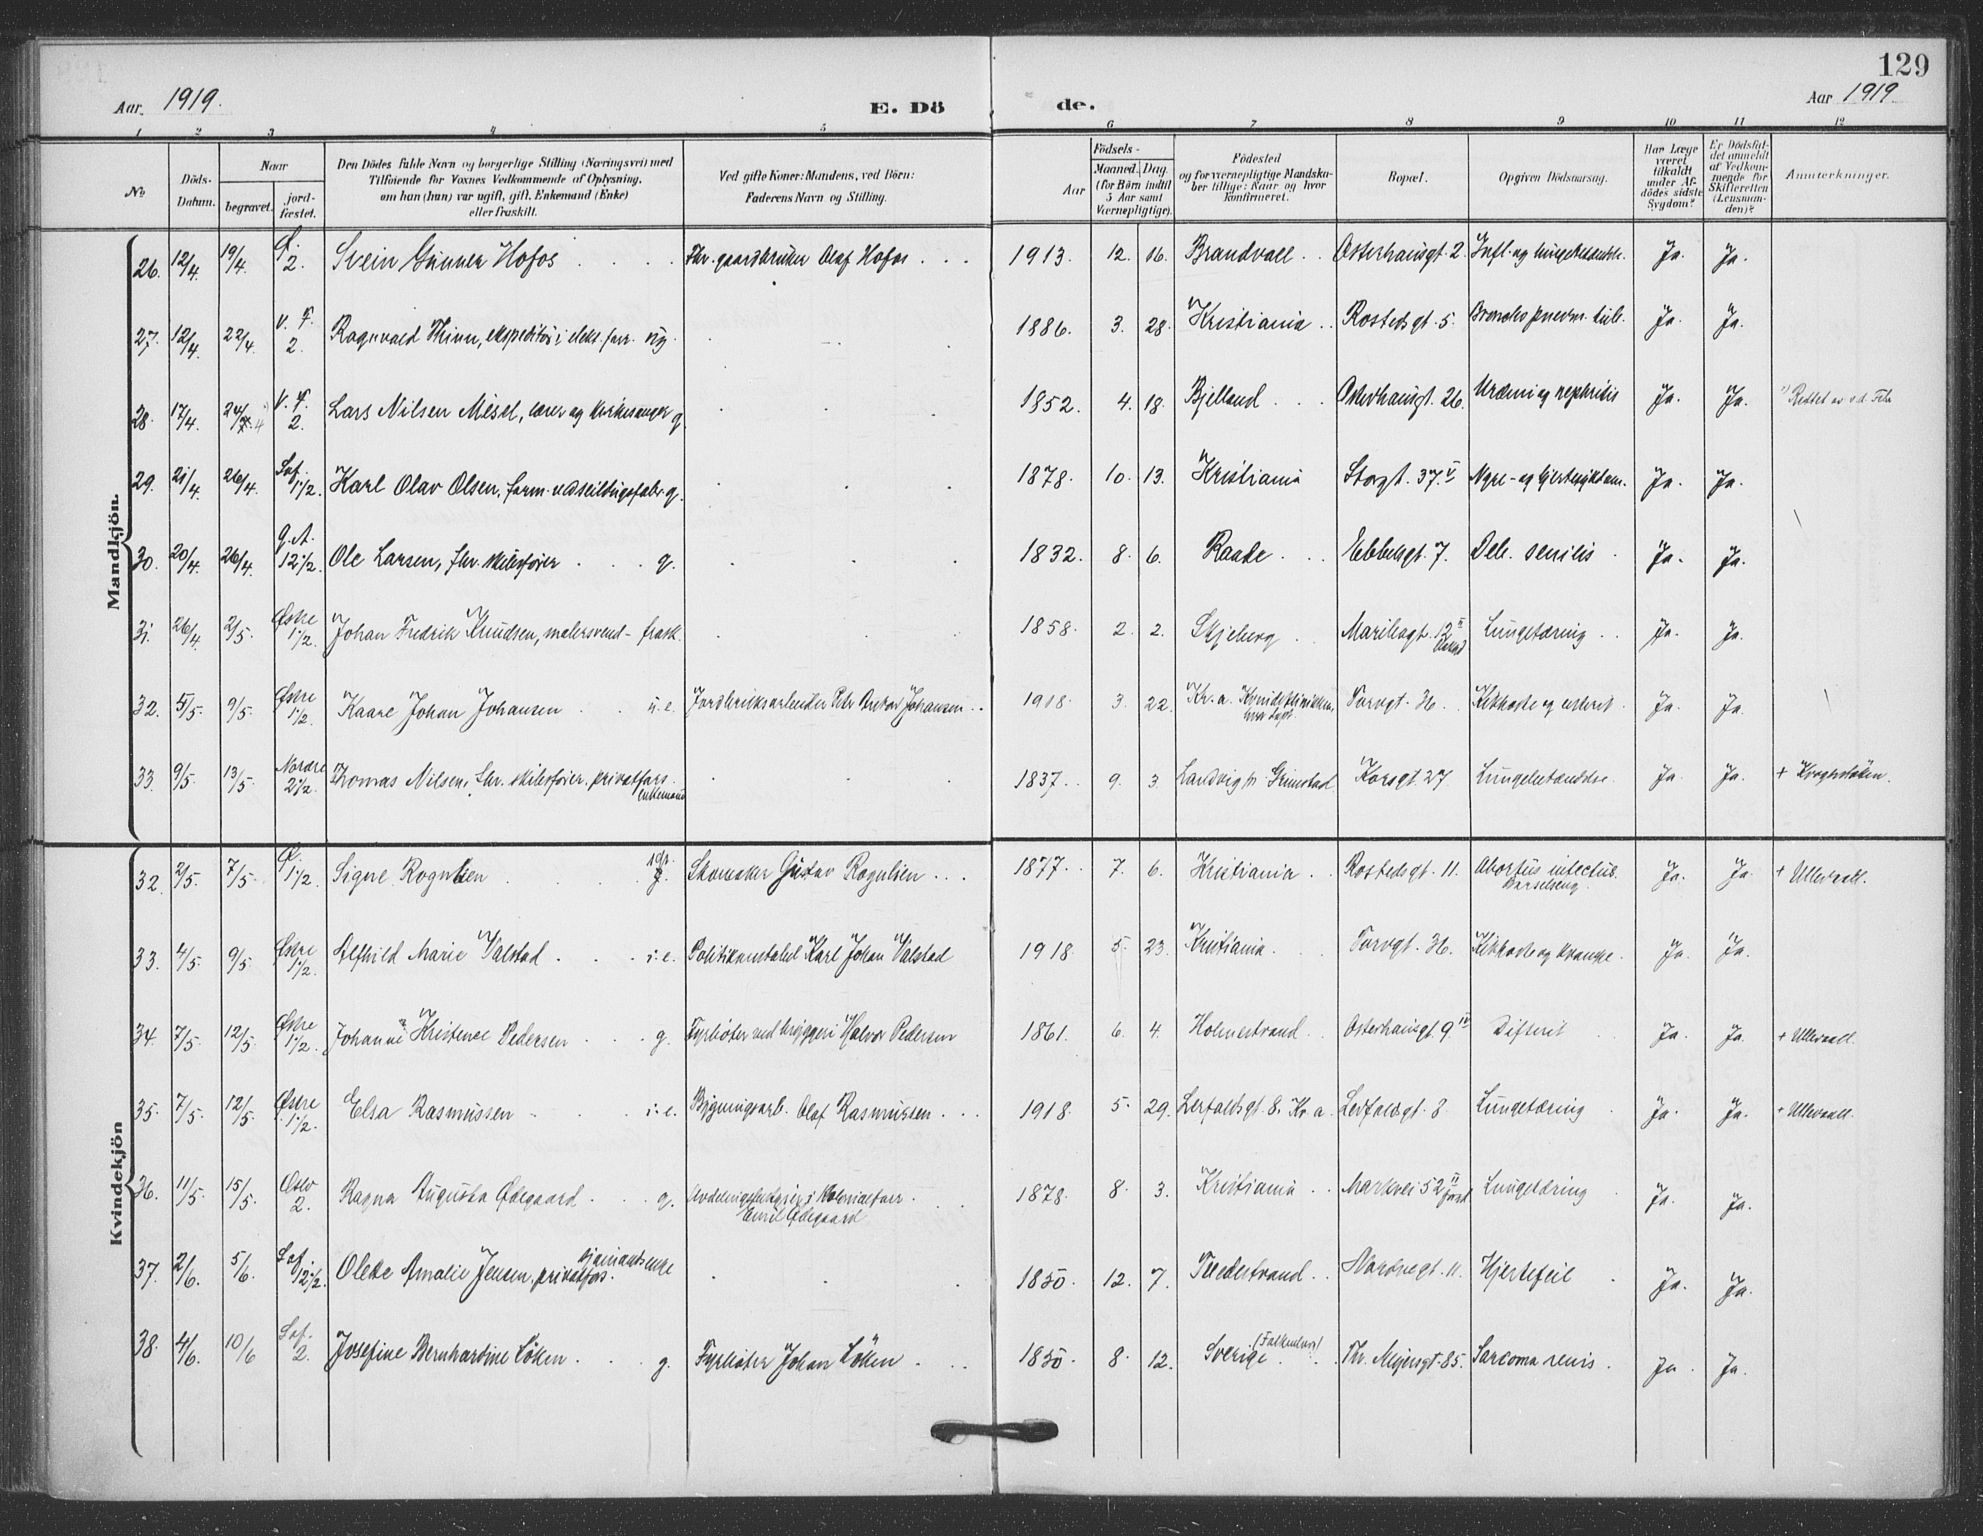 129
Aar 1919.
E. Dö
de.
Aar 1919
1 2 3 4 5 6 7 8 9 10 11 12
No
Døds-Datum.
Naar
begravet.
jord-fæstet.
Den Dödes fulde Navn og borgerlige Stilling (Næringsvei) med
Tilføiende for Voxnes Vedkommende af Oplysning,
om han (hun) var ugift, gift, Enkemand (Enke)
eller fraskilt.
Ved gifte Koner: Mandens, ved Börn:
Faderens Navn og Stilling.
Födsels-
Aar
Maaned. Dag.
(for Börn indtil
5 Aar samt
Værnepligtige).
Födested
og for værnepligtige Mandska-
ber tillige: Naar og hvor
konfirmeret.
Bopæl.
Opgiven Dödsaarsag.
Har Læge
været
tilkaldt
under Af-
dödes sidste
Sygdom?
Er Dödsfal-
det anmeldt
af Vedkom-
mende for
Skifteretten
(Lensman-
den)?
Anmærkninger.
Mandkjön.
26. 12/4. 19/4. Ø. 2. Svein Gunner Hofos Fhv. gaardbruker Olaf Hofos 1913. 12. 16. Brandvall Osterhausgt. 2. Infl. og lungebetændelse. Ja. Ja.
27. 12/4. 22/4. V. F. 2. Ragnvald Thinn, ekspeditør i elekt. forr. ug. 1886. 3. 28. Kristiania Rostedsgt. 5. Broncho pneum. tub. Ja. Ja.
28. 17/4. 24/4. V. F. 2. Lars Nilsen Mesel, lærer og kirkesanger g. 1852. 4. 18. Bjelland Osterhausgt. 26. Uræmi og nephritis Ja. Ja. Rettet av
29. 21/4. 26/4. Sof. 1 1/2. Karl Olav Olsen, form. ved seildugsfabr. g. 1878. 10. 13. Kristiania Storgt. 37 V Nyre- og hjertesykdom. Ja. Ja.
30. 20/4. 26/4. g. A. 12 1/2. Ole Larsen, fhv. skibsfører g. 1832. 8. 6. Raade Ebbelsgt. 7. Deb. senilis Ja. Ja.
31. 26/4. 2/5. Østre 1 1/2. Johan Fredrik Knudsen, malersvend - frask. 1858. 2. 2. Skjeberg Maribogt. 12 II Lungetæring Ja. Ja.
32. 5/5. 9/5. Østre 1 1/2. Kaare Johan Johansen u. e. Johansen 1918. 3. 22. Kr.a. Kvindeklinikken, Torvgt. 36. Kikhoste og enterit. Ja. Ja.
33. 9/5. 13/5. Nordre 2 1/2. Thomas Nilsen, fhv. skibsfører, privat fors. enkemand 1837. 9. 3. Landvig pr. Grimstad Korsgt. 27 Lungebetændelse. Ja. Ja. + Krogstøtten.
Kvindekjön
32. 2/5. 7/5. Ø. 1 1/2. Signe Rognlien g. Skomaker Gustav Rognlien 1877. 7. 6. Kristiania Rostedsgt. 11. Abortus infectus. Barselseng. Ja. Ja. + Ullevaall.
33. 4/5. 9/5. Østre 1 1/2. Alfhild Marie Valstad i. e. Politikonstabel Karl Johan Valstad 1918. 5. 23. Kristiania Torvgt. 36. Kikhoste og krampe. Ja. Ja.
34. 7/5. 12/5. Østre 1 1/2. Johanne Kristence Pedersen g. Fyrbøter ved bryggeri Halvor Pedersen 1861. 6. 4. Holmestrand Osterhausgt. 9 IV Difterit Ja. Ja. + Ullevaall.
35. 7/5. 12/5. Østre 1 1/2. Elsa Rasmussen i. e. Bygningsarb. Olaf Rasmussen 1918. 5. 29. Lerfaldsgt. 8. Kr.a. Lerfaldsgt. 8 Lungetæring Ja. Ja. + Ullevaall.
36. 11/5. 15/5. Oslo 2. Ragna Augusta Ødegaard g. Avdelingsbestyrer i Kolonialforr. Emil Ødegaard 1878. 8. 3. Kristiania Markvei 52 II Lungetæring Ja. Ja.
37. 2/6. 5/6. Sof. 12 1/2. Olette Amalie Jensen, privat fors. 1850. 12. 7. Tvedestrand Nordregt. 11. Hjertefeil Ja. Ja.
38. 4/6. 10/6 Sof. 2. Josefine Bernhardine Løken g. Fyrbøter Johan Løken 1850. 8. 12. Sverige (Falkenberg) Th. Meyersgt. 85. Sarcoma renis Ja. Ja.